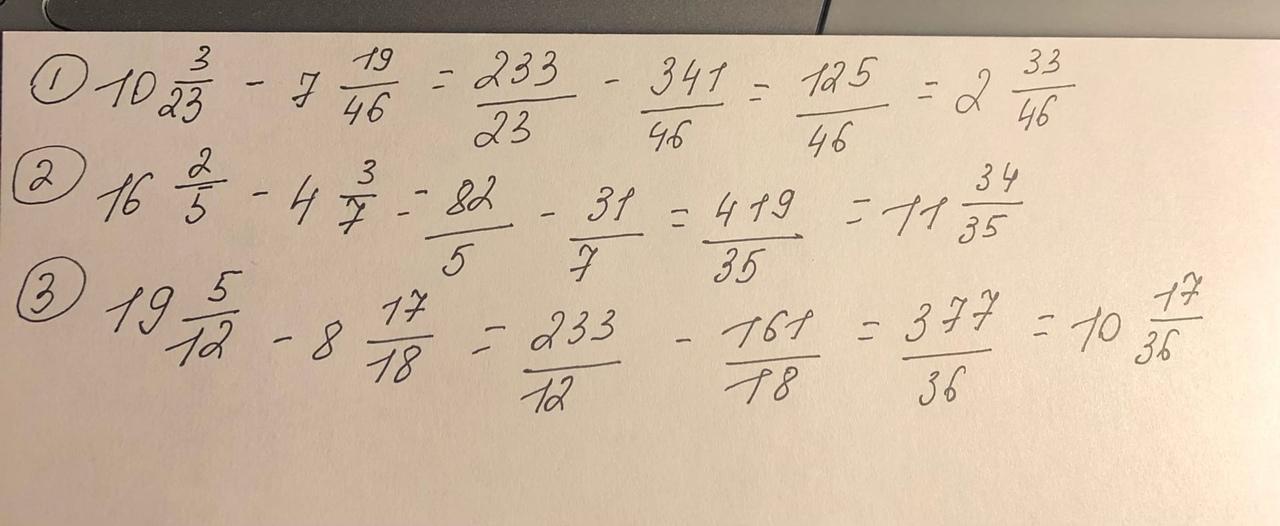 ① 10 3/23 - 7 19/46 = 233/23 - 341/46 = 125/46 = 2 33/46
② 16 2/5 - 4 3/7 = 82/5 - 31/7 = 419/35 = 11 34/35
③ 19 5/12 - 8 17/18 = 233/12 - 161/18 = 377/36 = 10 17/36